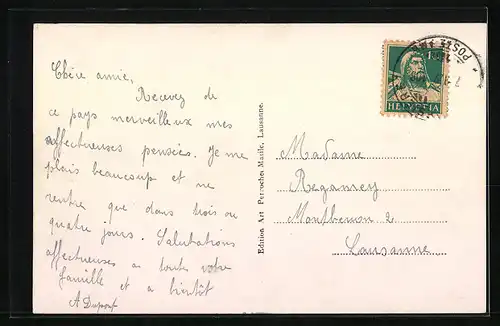 Chère amie,
Recevez de
ce pays merveilleux mes
affectueuses pensées. Je me
plais beaucoup et ne
rentre que dans trois ou
quatre jours. Salutations
affectueuses a toute votre
famille et a bientôt
A Dupont
Edition Art. Perrochet Matile, Lausanne.
HELVETIA
Madame
Regamey
Montbenon 2
Lausanne